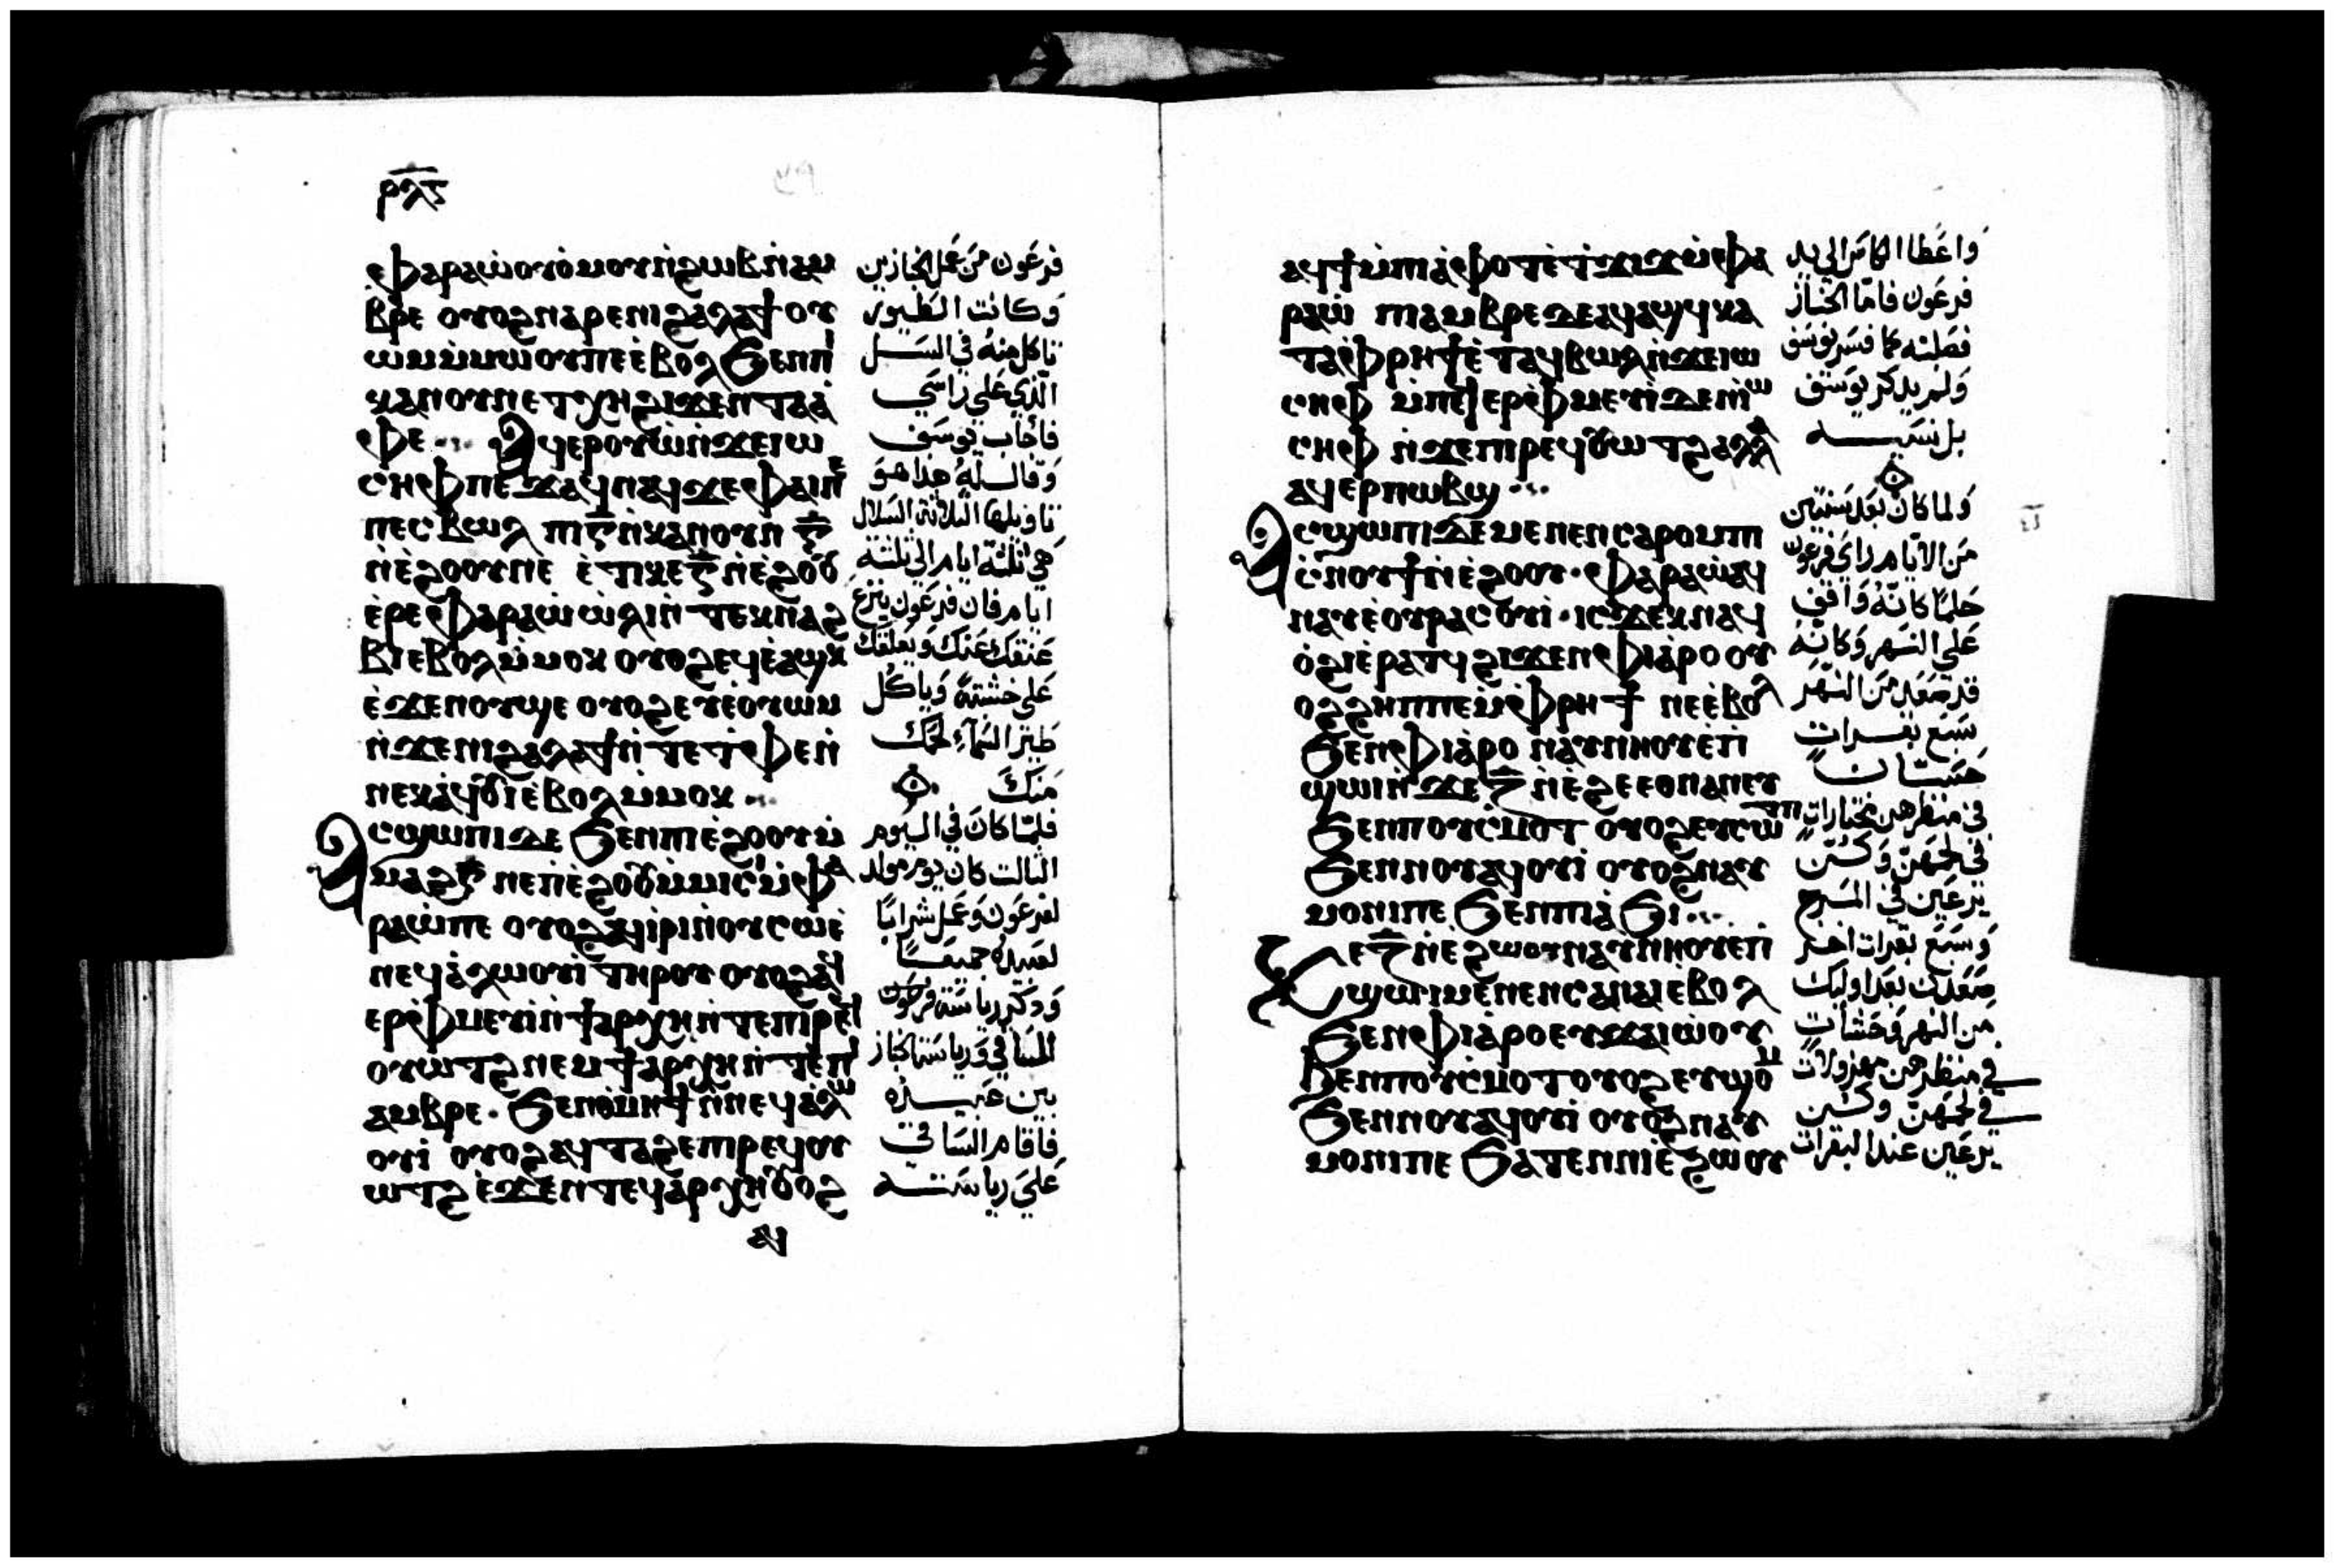 ⲣⲗⲋ
ⲫⲁⲣⲁⲱ̀ ⲟⲩⲟ̀ⲙ ⲟⲩⲛ̀ϩⲱⲃ ⲛ̀ⲁⲙ
ⲃⲣⲉ ⲟⲩⲟϩ ⲛⲁⲣⲉ ⲛⲓϩⲁⲗⲁϯ ⲟⲩ
ⲱⲙ ⲙ̀ⲙⲱⲟⲩ ⲡⲉ ⲉ̀ⲃⲟⲗ ϧⲉⲛ ⲡⲓ
ⲕⲁⲛⲟⲩⲛ ⲉⲧⲭⲏ ϩⲓϫⲉⲛ ⲧⲁⲁ̀
ⲫⲉ ⁖ Ⲁϥⲉⲣⲟⲩⲱ̀ ⲛ̀ϫⲉ ⲓⲱ
ⲥⲏⲫ ⲡⲉϫⲁϥ ⲛⲁϥ ϫⲉ ⲫⲁⲓ ⲡⲉ
ⲡⲉϥⲃⲱⲗ ⲡⲓⲅ̅ ⲛ̀ⲕⲁⲛⲟⲩⲛ ⲅ̅
ⲛ̀ⲉ̀ϩⲟⲟⲩ ⲛⲉ ⲉ̀ⲧⲓ ⲕⲉⲅ̅ ⲛ̀ⲉ̀ϩⲟⲟⲩ
ⲉ̀ⲣⲉ ⲫⲁⲣⲁⲱ̀ ⲱ̀ⲗⲓ ⲛ̀ⲧⲉⲕⲛⲁϩ
ⲃⲓ ⲉ̀ⲃⲟⲗ ⲙ̀ⲙⲟⲕ ⲟⲩⲟϩ ⲉϥⲉ̀ⲁϣⲕ
ⲉ̀ϫⲉⲛ ⲟⲩϣⲉ ⲟⲩⲟϩ ⲉⲩⲉ̀ⲟⲩⲱⲙ
ⲛ̀ϫⲉ ⲛⲓϩⲁⲗⲁϯ ⲛ̀ⲧⲉ ⲧ̀ⲫⲉ ⲛ̀
ⲛⲉⲕⲁ̀ϥⲟⲩⲓ̀ ⲉ̀ⲃⲟⲗ ⲙ̀ⲙⲟⲕ ⁖
Ⲁⲥϣⲱⲡⲓ ⲇⲉ ϧⲉⲛ ⲡⲓⲉ̀ϩⲟⲟⲩ ⲙ̀
ⲙⲁϩⲅ̅ ⲛⲉ ⲡⲉ̀ϩⲟⲟⲩ ⲙ̀ⲙⲓⲥⲓ ⲙ̀ⲫⲁ
ⲣⲁⲱ̀ ⲡⲉ ⲟⲩⲟϩ ⲁϥⲓ̀ⲣⲓ ⲛ̀ⲟⲩⲥⲱ ⲉ̀
ⲛⲉϥⲁ̀ⲗⲱⲟⲩⲓ̀ ⲧⲏⲣⲟⲩ ⲟⲩⲟϩ ⲁϥ
ⲉⲣⲫ̀ⲙⲉⲩⲓ̀ ⲛ̀ϯⲁⲣⲭⲏ ⲛ̀ⲧⲉ ⲡⲓⲣⲉϥ
ⲟⲩⲱ̀ⲧϩ ⲛⲉⲙ ϯⲁⲣⲭⲏ ⲛ̀ⲧⲉ ⲡⲓ
ⲁⲙⲃⲣⲉ · ϧⲉⲛ ⲑ̀ⲙⲏϯ ⲛ̀ⲛⲉϥⲁ̀ⲗⲱ
ⲟⲩⲓ̀ ⲟⲩⲟϩ ⲁϥⲧⲁϩⲉ ⲡⲓⲣⲉϥⲟⲩ
ⲱⲧϩ ⲉ̀ϫⲉⲛ ⲧⲉϥⲁ̀ⲣⲭⲏ ⲟⲩⲟϩ
ⲁϥ
فرعون من عمل الخبازين
وكانت الطيور
تاكل منه في السل
الذي على راسي
فأجاب يوسف
وقال له هذا هو
تاويلها الثلاثة السلال
هي ثلثة ايام الي ثلثة
ايام فان فرعون ينزع
عنقك عنك ويعلقك
على خشبة وياكل
طير السماء لحمك
منك
فلما كان في اليوم
الثالث كان يوم مولد
لفرعون وعمل شرابا
لعبيده جميعا
وذكر رياسة فرعون
الساقي ورياسة الخباز
بين عبيده
فاقام الساقي
على رياسته
ⲁϥϯ ⲙ̀ⲡⲓⲁ̀ⲫⲟⲧ ⲉ̀ⲧϫⲓϫ ⲙ̀ⲫⲁ
ⲣⲁⲱ̀ ⲡⲓⲁⲙⲃⲣⲉ ⲇⲉ ⲁϥⲁϣϥ ⲕⲁ
ⲧⲁ ⲫ̀ⲣⲏϯ ⲉ̀ⲧⲁϥⲃⲱⲗ ⲛ̀ϫⲉ ⲓⲱ
ⲥⲏⲫ ⲙ̀ⲡⲉϥⲉⲣⲫ̀ⲙⲉⲩⲓ̀ ⲇⲉ ⲛ̀ⲓⲱ
ⲥⲏⲫ ⲛ̀ϫⲉ ⲡⲓⲣⲉϥⲟⲩⲱⲧϩ ⲁⲗⲗⲁ
ⲁϥⲉⲣⲡⲱⲃϣ ⁖
Ⲁⲥϣⲱⲡⲓ ⲇⲉ ⲙⲉⲛⲉⲛⲥⲁ ⲣⲟⲙⲡⲓ
ⲥ̀ⲛⲟⲩϯ ⲛ̀ⲉ̀ϩⲟⲟⲩ · ⲫⲁⲣⲁⲱ̀ ⲁϥ
ⲛⲁⲩ ⲉ̀ⲟⲩⲣⲁⲥⲟⲩⲓ̀ · ⲓⲥϫⲉⲕ ⲛⲁϥ
ⲟ̀ϩⲓ ⲉ̀ⲣⲁⲧϥ ϩⲓϫⲉⲛ ⲫⲓⲁⲣⲟ ⲟⲩ
ⲟϩ ϩⲏⲡⲡⲉ ⲙ̀ⲫ̀ⲣⲏϯ ⲛⲉ ⲉ̀ⲃⲟⲗ
ϧⲉⲛ ⲫⲓⲁⲣⲟ ⲛⲁⲩⲛⲏⲟⲩ ⲉ̀ⲡ
ϣⲱⲓ ⲛ̀ϫⲉ ⲍ̅ ⲛ̀ⲉ̀ϩⲉ ⲉⲑⲛⲁⲛⲉⲩ
ϧⲉⲛ ⲡⲟⲩⲥ̀ⲙⲟⲧ ⲟⲩⲟϩ ⲉⲩⲥⲱⲧⲡ
ϧⲉⲛ ⲛⲟⲩⲁϥⲟⲩⲓ̀ ⲟⲩⲟϩ ⲛⲁⲩ
ⲙⲟⲛⲓ ⲡⲉ ϧⲉⲛ ⲡⲓⲁ̀ϧⲓ ⁖
Ⲕⲉⲍ̅ ⲛ̀ⲉ̀ϩⲱⲟⲩ ⲛⲁⲩⲛⲏⲟⲩ ⲉ̀ⲡ
ϣⲱⲓ ⲙⲉⲛⲉⲛⲥⲁ ⲛⲁⲓ ⲉ̀ⲃⲟⲗ
ϧⲉⲛ ⲫⲓⲁⲣⲟ ⲉⲩϫⲁⲓⲱ̀ⲟⲩ
ϧⲉⲛ ⲡⲟⲩⲥ̀ⲙⲟⲧ ⲟⲩⲟϩ ⲉⲩϣⲟⲙ
ϧⲉⲛ ⲛⲟⲩⲁϥⲟⲩⲓ̀ ⲟⲩⲟϩ ⲛⲁⲩ
ⲙⲟⲛⲓ ⲡⲉ ϧⲁⲧⲉⲛ ⲛⲓⲉ̀ϩⲱⲟⲩ
واعطا الكاس الي يد
فرعون فاما الخباز
فصلبه كما فسر يوسف
ولم يذكر يوسف
بل نسيه
ولما كان بعد سنتين
من الايام راي فرعون
حلما كانه واقف
على النهر وكانه
قد صعد من النهر
سبع بقرات
حسان
في منظرهن مختارات
في لحمهن وكن
يرعين في المرج
وسبع بقرات اخر
صعدت بعد اوليك
من النهر وحشات
في منظرهن مهزولات
في لحمهن وكن
يرعين عند البقرات